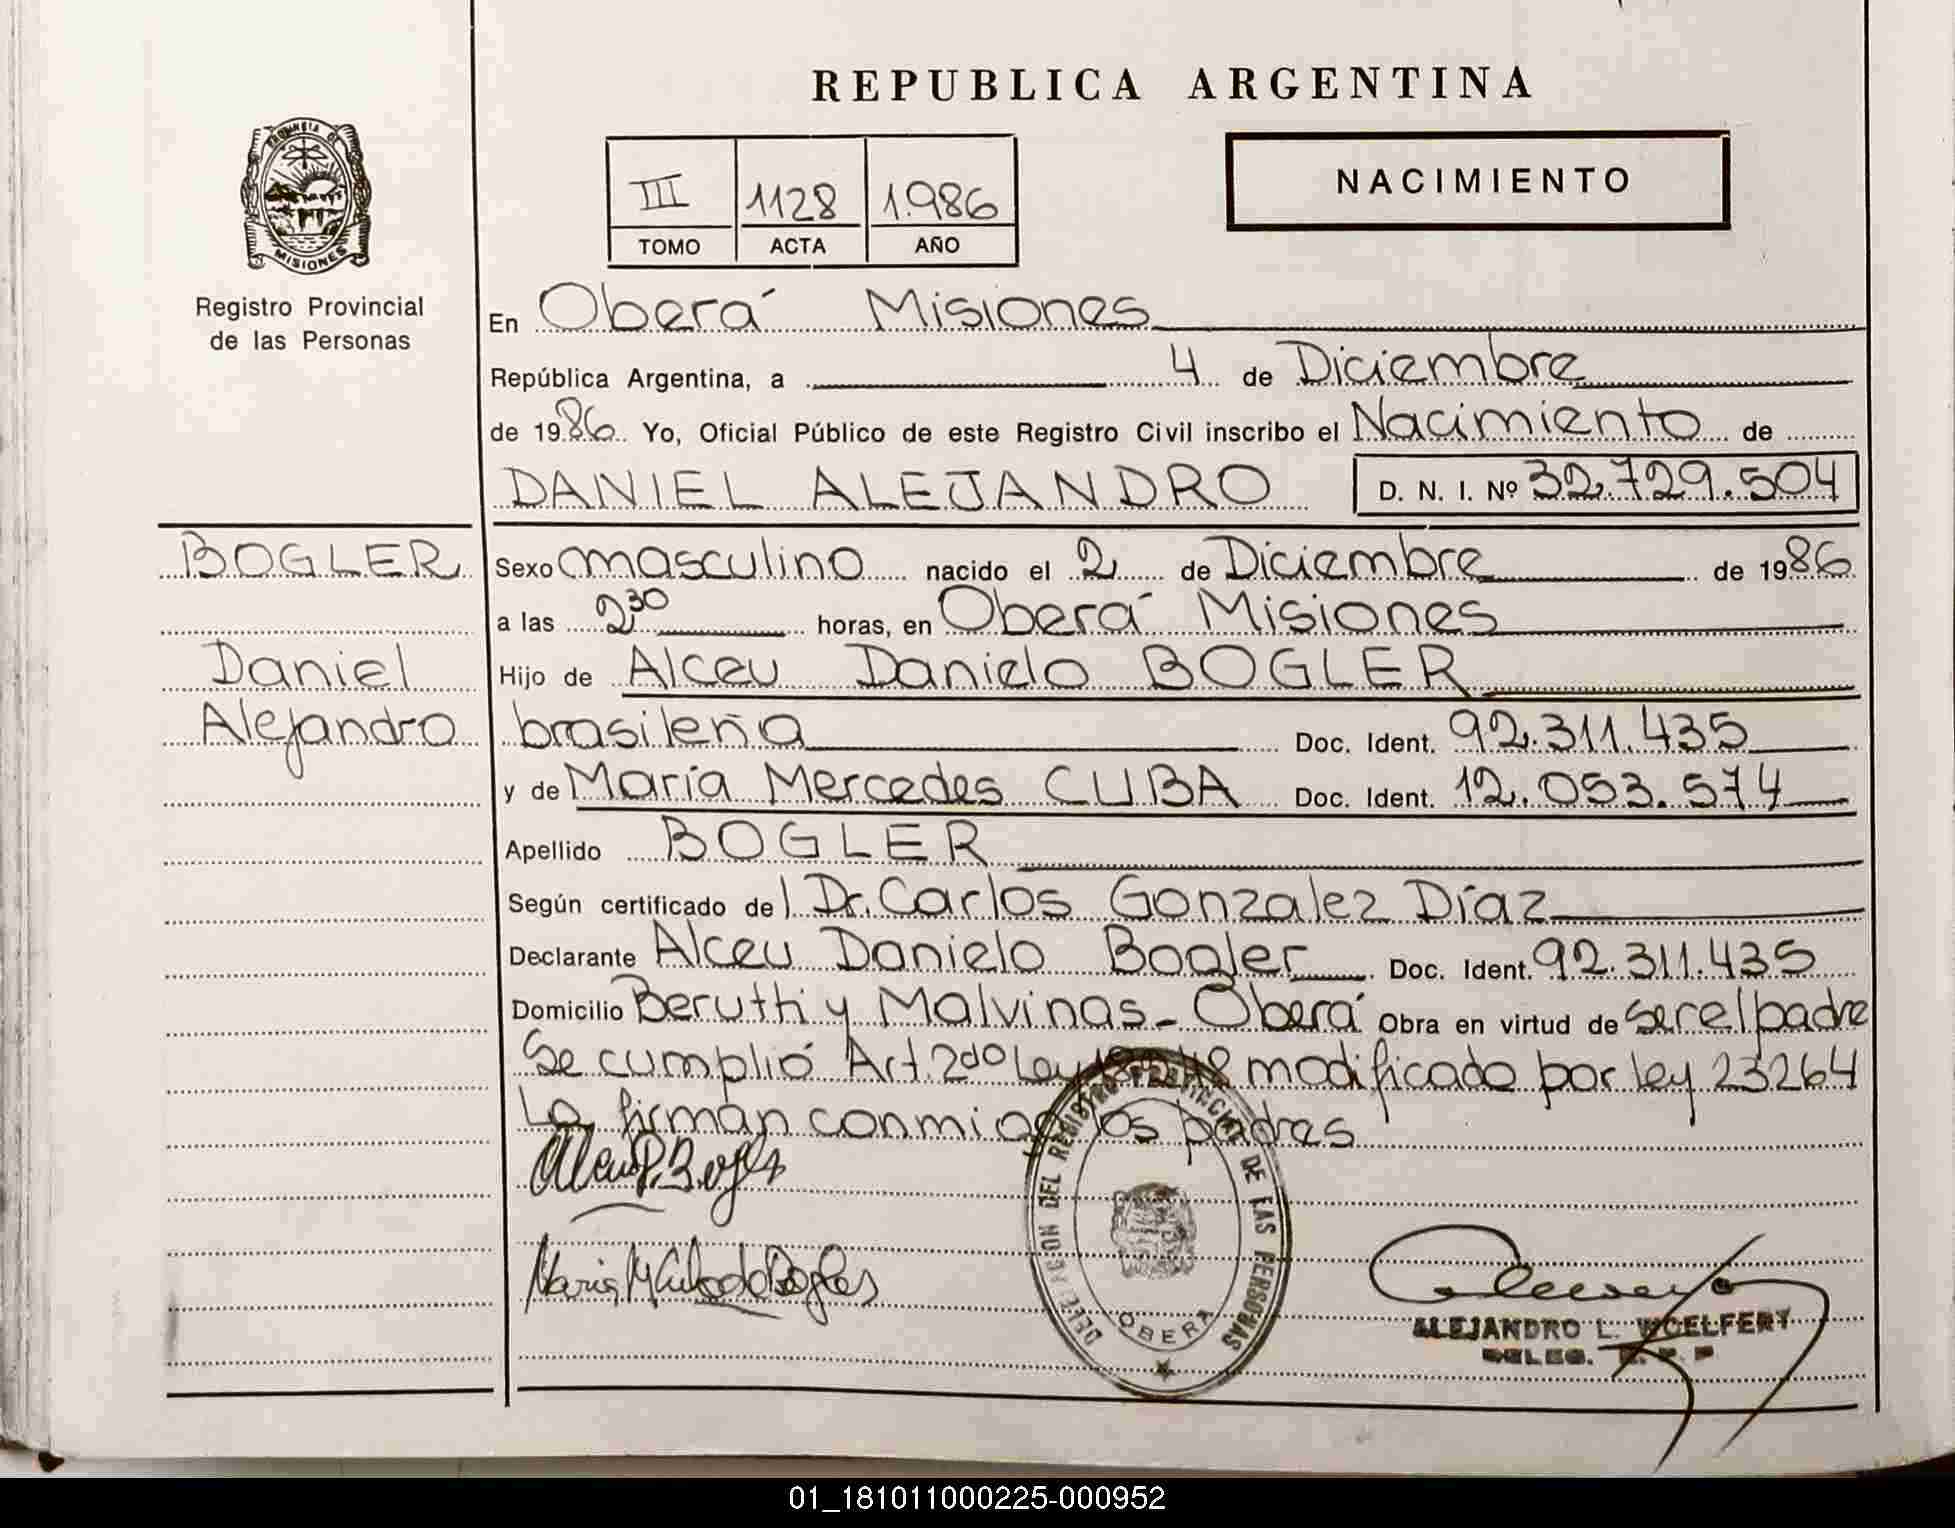 REPUBLICA ARGENTINA
PROVINCIA DE
MISIONES
Registro Provincial
de las Personas
III 1128 1.986
TOMO ACTA AÑO
NACIMIENTO
En Oberá Misiones
República Argentina, a 4 de Diciembre
de 1986 Yo, Oficial Público de este Registro Civil inscribo el Nacimiento de
DANIEL ALEJANDRO D. N. I. Nº 32.729.504
BOGLER
Daniel
Alejandro
Sexo masculino nacido el 2 de Diciembre de 1986
a las 2 30 horas, en Oberá Misiones
Hijo de Alceu Danielo BOGLER
brasileña Doc. Ident. 92.311.435
y de María Mercedes CUBA Doc. Ident. 12.053.574
Apellido BOGLER
Según certificado del Dr. Carlos Gonzalez Díaz
Declarante Alceu Danielo Bogler Doc. Ident. 92.311.435
Domicilio Beruthi y Malvinas - Oberá Obra en virtud de ser el padre
Se cumplió Art. 2do Ley 18248 modificado por ley 23264
La firman conmigo los padres
DELEGACION DEL REGISTRO PROVINCIAL DE LAS PERSONAS
OBERA
ALEJANDRO L. WOELFERT
DELEG. R. P. P
01_181011000225-000952